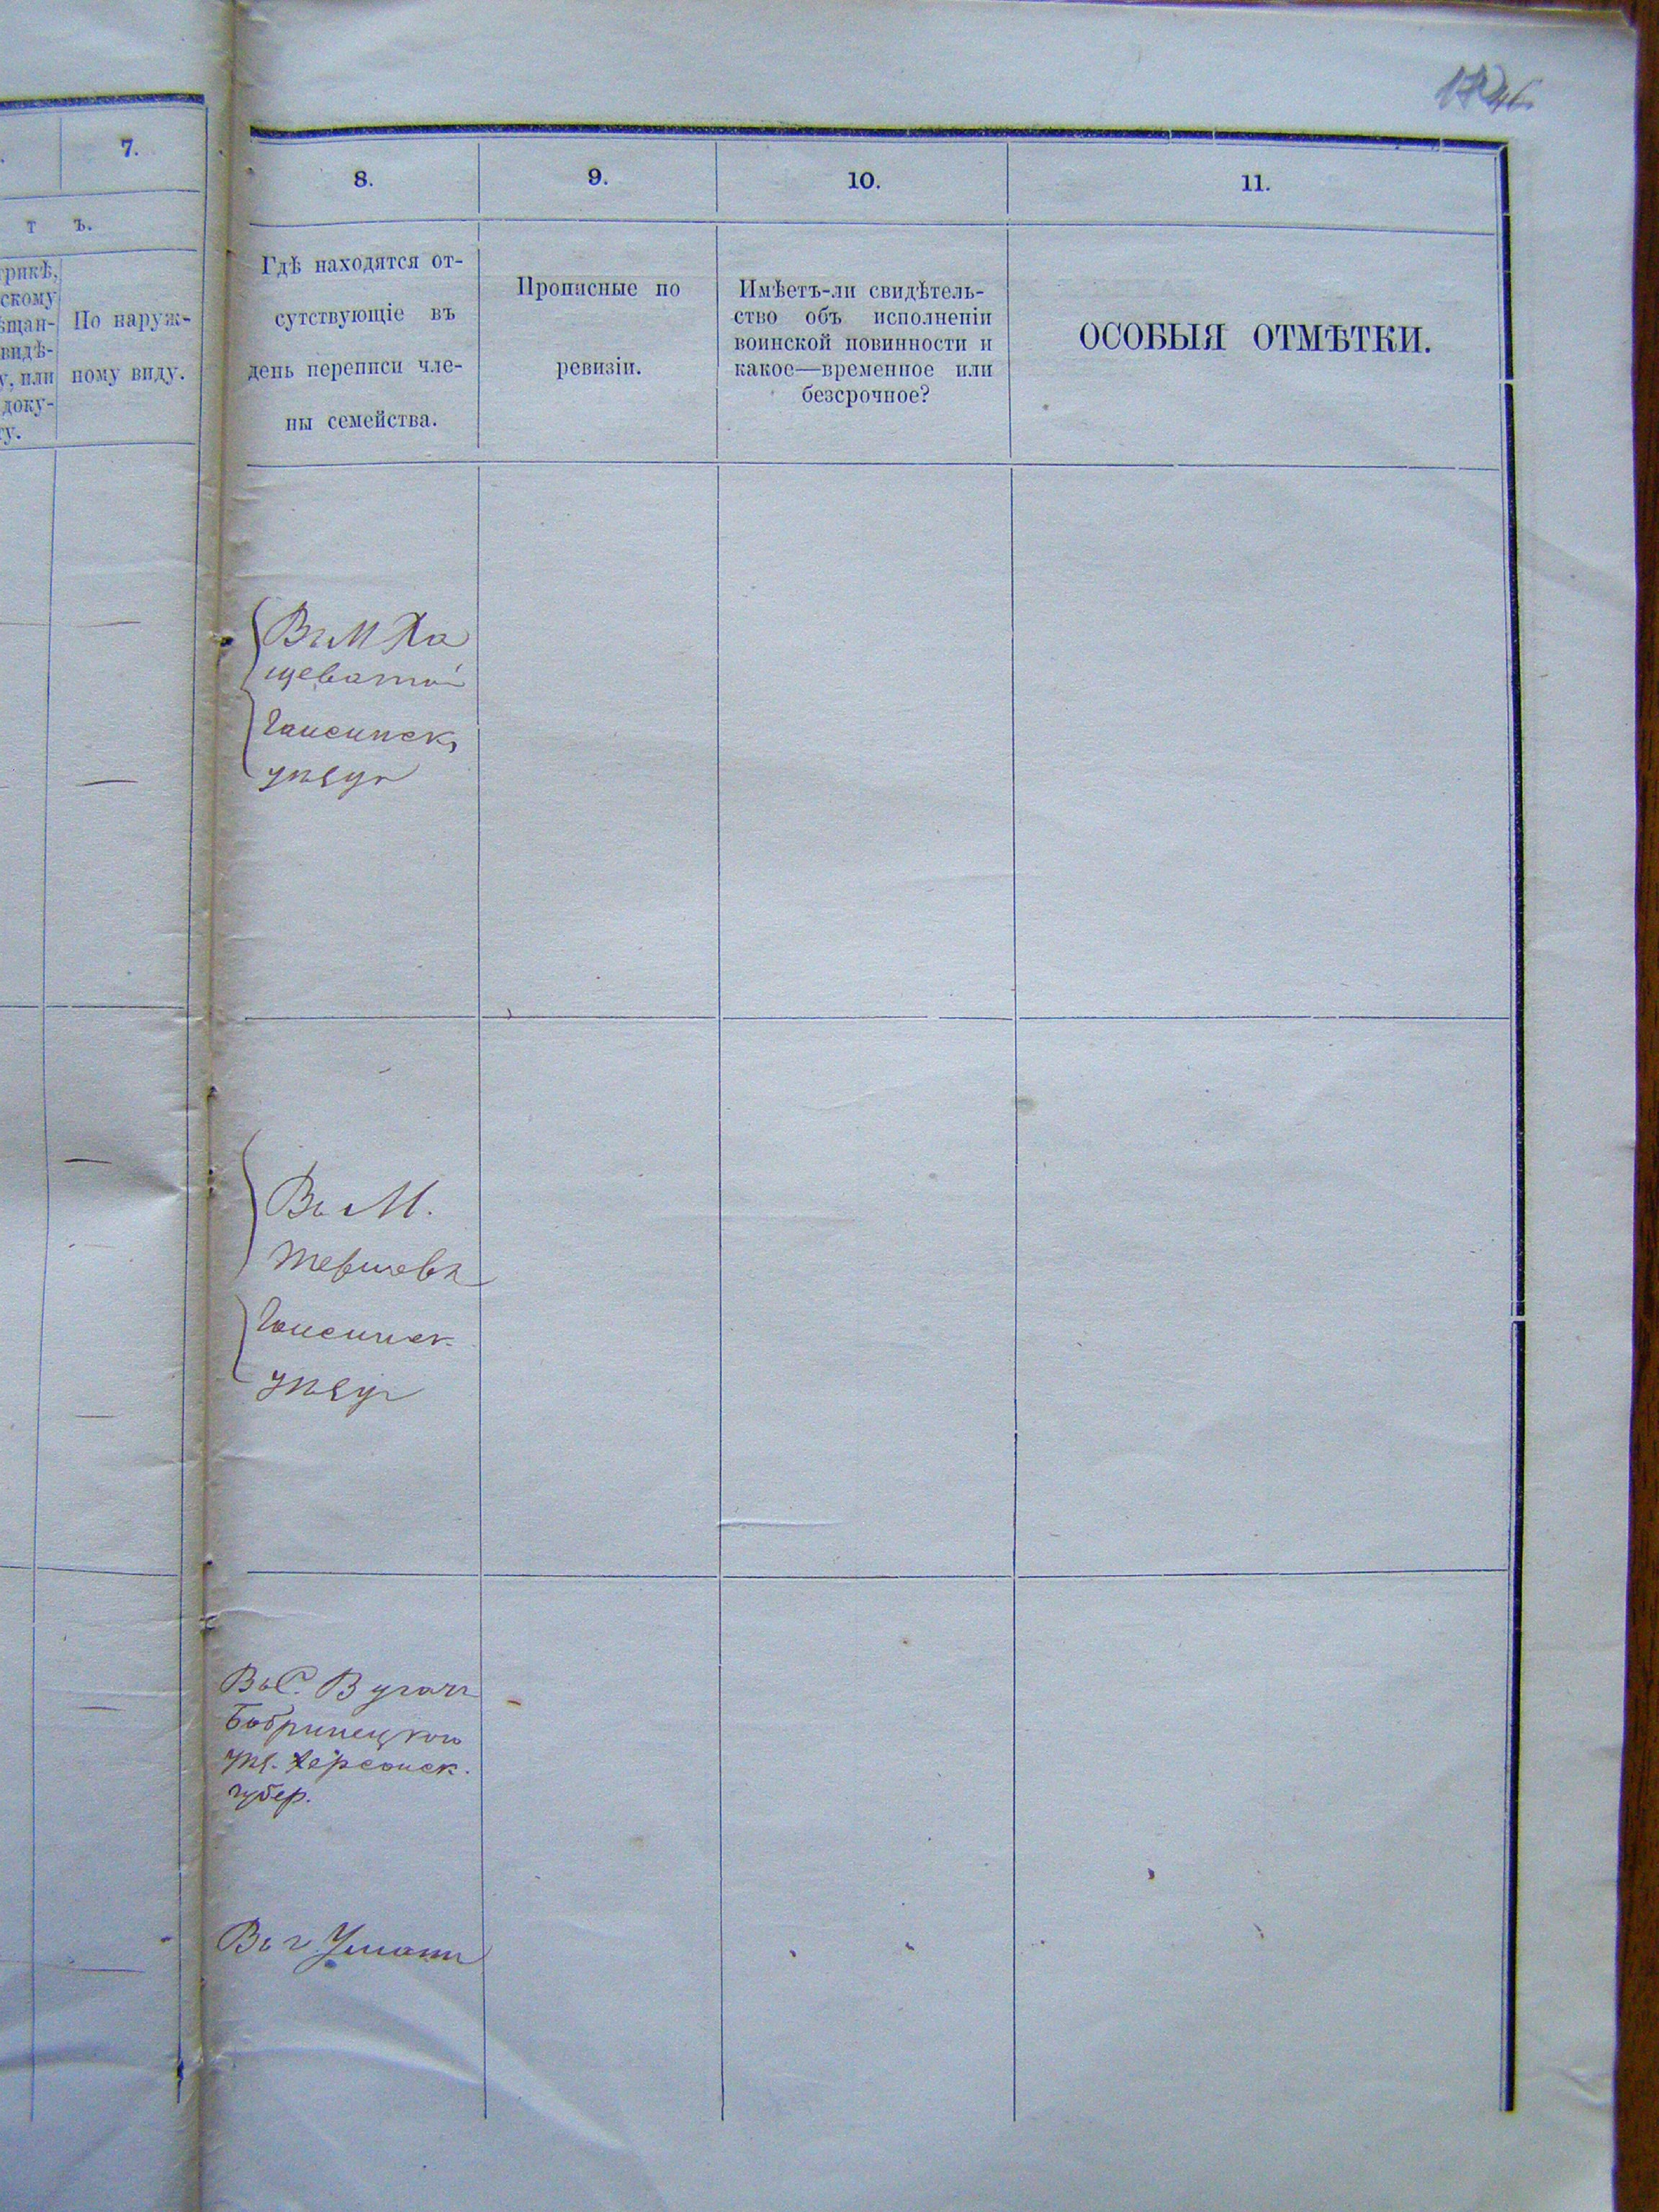 7.
т ъ.
По наруж-
ному виду.
8.
9.
10.
11.
Гдѣ находятся от-
сутствующіе въ
день переписи чле-
ны семейства.
Прописные по
ревизіи.
Имѣетъ-ли свидѣтель-
ство объ исполненіи
воинской повинности и
какое—временное или
безсрочное?
ОСОБЫЯ ОТМѢТКИ.
Въ М Ха
щеватой
Гайсинск
уѣзда
Въ М.
Гайсинск.
уѣзда
Въ С.
Бобринецкого
уѣз. Херсонск.
губер.
Въ г. Умани